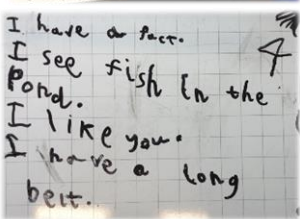 I have a fact.
4
I see fish in the
Pond.
I like you.
I have a long
belt.